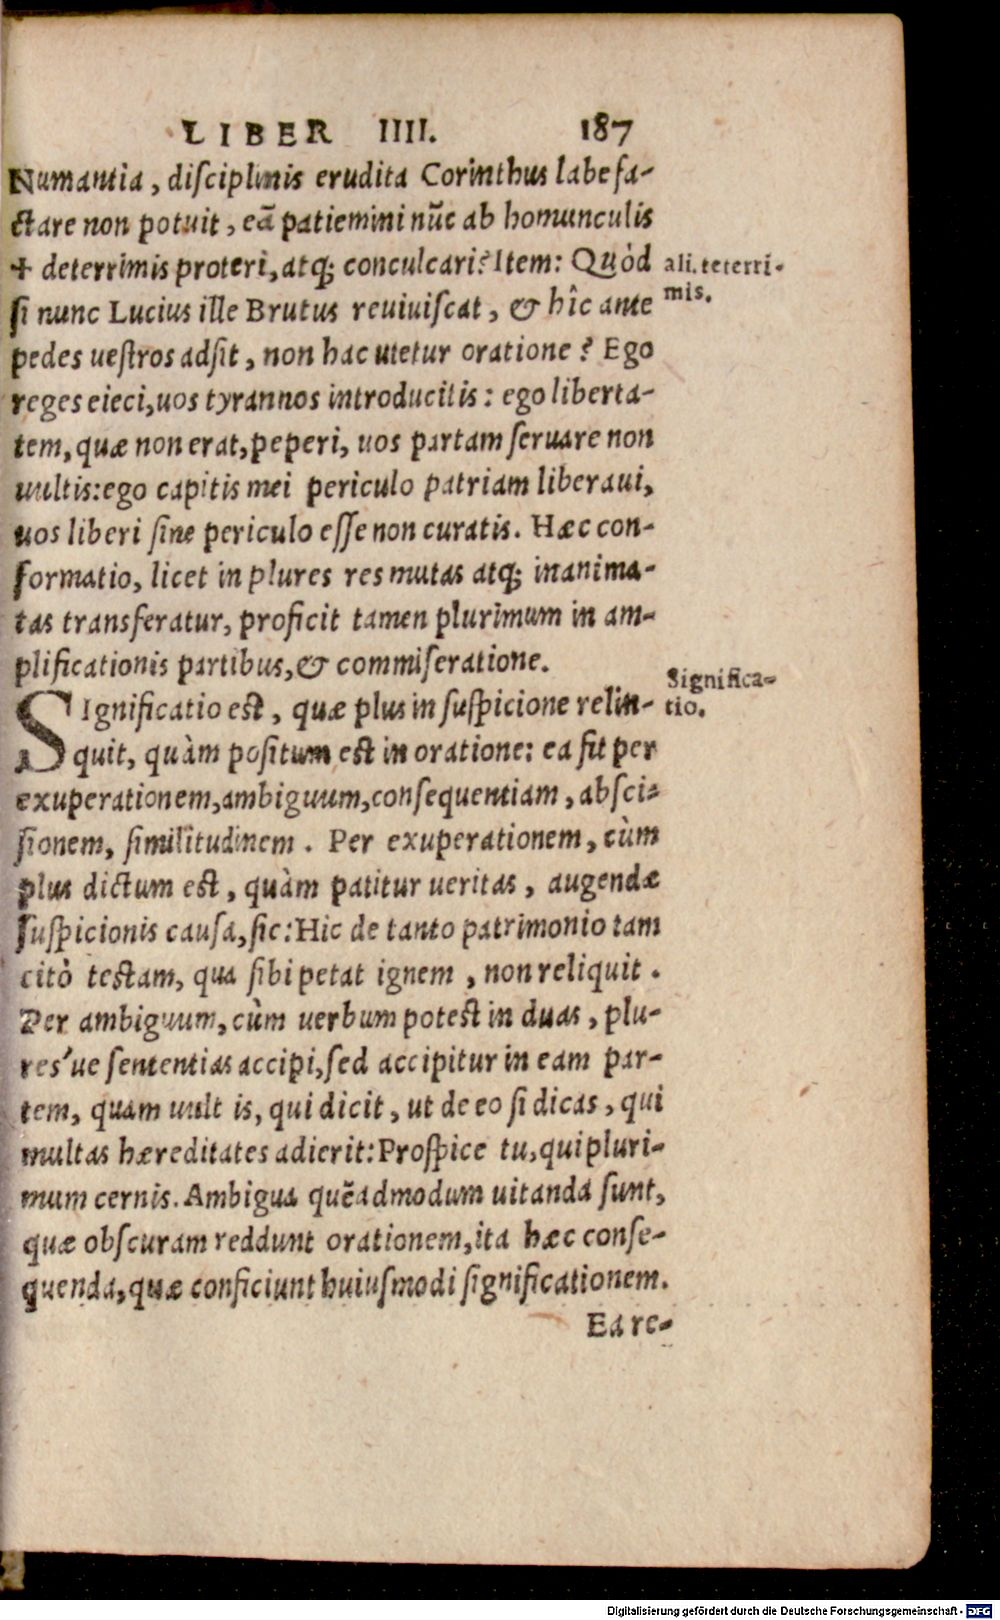 LIBER IIII. 187
Numantia, disciplinis erudita Corinthus labefa-
ctare non potuit, eã patiemini nũc ab homunculis
+ deterrimis proteri, atq; conculcari? Item: Quòd
ali. teterri-
mis.
si nunc Lucius ille Brutus reuiuiscat, & hîc ante
pedes uestros adsit, non hac utetur oratione? Ego
reges eieci, uos tyrannos introducitis: ego liberta-
tem, quæ non erat, peperi, uos partam seruare non
uultis: ego capitis mei periculo patriam liberaui,
uos liberi sine periculo esse non curatis. Hæc con-
formatio, licet in plures res mutas atq; inanima-
tas transferatur, proficit tamen plurimum in am-
plificationis partibus, & commiseratione.
Significa-
tio.
SIgnificatio est, quæ plus in suspicione relin-
quit, quàm positum est in oratione: ea fit per
exuperationem, ambiguum, consequentiam, absci-
sionem, similitudinem. Per exuperationem, cùm
plus dictum est, quàm patitur ueritas, augendæ
suspicionis causa, sic: Hic de tanto patrimonio tam
citò testam, qua sibi petat ignem, non reliquit.
Per ambiguum, cùm uerbum potest in duas, plu-
res'ue sententias accipi, sed accipitur in eam par-
tem, quam uult is, qui dicit, ut de eo si dicas, qui
multas hæreditates adierit: Prospice tu, qui pluri-
mum cernis. Ambigua quẽadmodum uitanda sunt,
quæ obscuram reddunt orationem, ita hæc conse-
quenda, quæ conficiunt huiusmodi significationem.
Ea re-
Digitalisierung gefördert durch die Deutsche Forschungsgemeinschaft - DFG